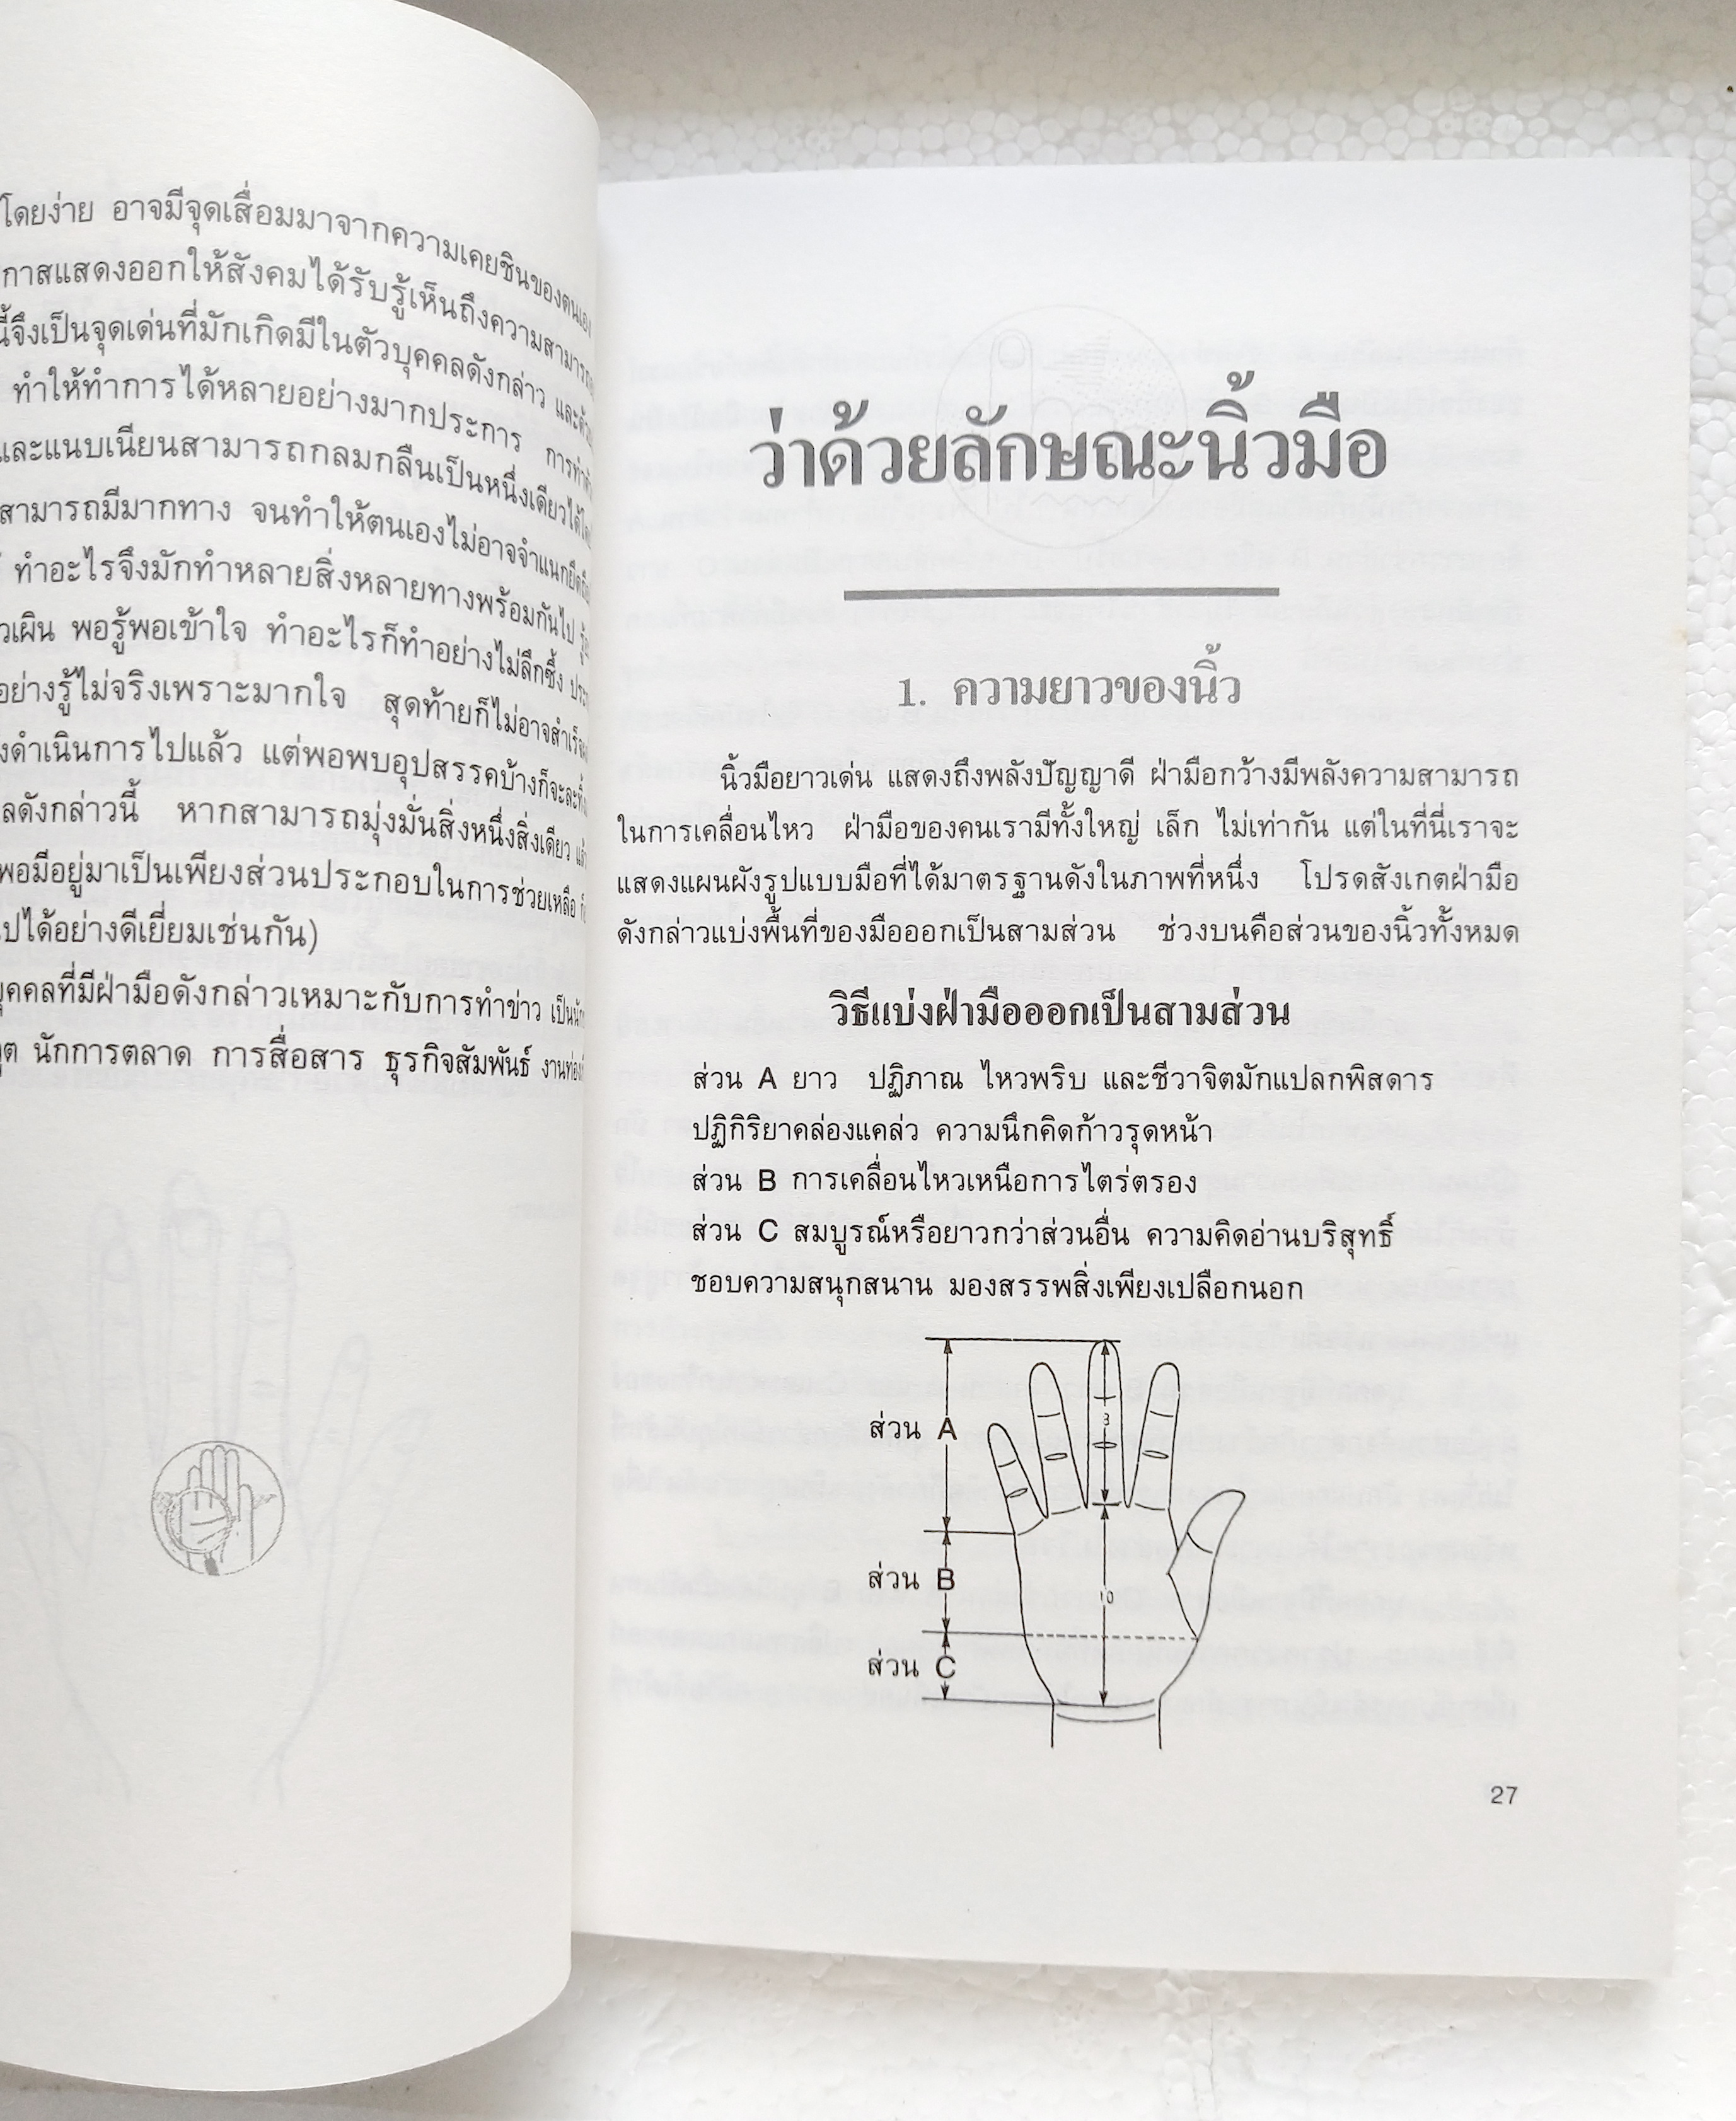 โดยง่าย อาจมีจุดเสื่อมมาจากความเคยชินของตนเอง
กาสแสดงออกให้สังคมได้รับรู้เห็นถึงความสามารถ
นี้จึงเป็นจุดเด่นที่มักเกิดมีในตัวบุคคลดังกล่าว และด้วย
ทำให้ทำการได้หลายอย่างมากประการ การทำ
และแนบเนียนสามารถกลมกลืนเป็นหนึ่งเดียวได้
สามารถมีมากทาง จนทำให้ตนเองไม่อาจจำแนกยึด
ทำอะไรจึงมักทำหลายสิ่งหลายทางพร้อมกันไป
วเผิน พอรู้พอเข้าใจ ทำอะไรก็ทำอย่างไม่ลึกซึ้ง
อย่างรู้ไม่จริงเพราะมากใจ สุดท้ายก็ไม่อาจสำเร็จ
งดำเนินการไปแล้ว แต่พอพบอุปสรรคบ้างก็จะละทิ้ง
ลดังกล่าวนี้ หากสามารถมุ่งมั่นสิ่งหนึ่งสิ่งเดียว
พอมีอยู่มาเป็นเพียงส่วนประกอบในการช่วยเหลือ
ปได้อย่างดีเยี่ยมเช่นกัน)
บุคคลที่มีฝ่ามือดังกล่าวเหมาะกับการทำข่าว เป็นนัก
ูต นักการตลาด การสื่อสาร ธุรกิจสัมพันธ์ งานท่อง
ว่าด้วยลักษณะนิ้วมือ
1. ความยาวของนิ้ว
นิ้วมือยาวเด่น แสดงถึงพลังปัญญาดี ฝ่ามือกว้างมีพลังความสามารถ
ในการเคลื่อนไหว ฝ่ามือของคนเรามีทั้งใหญ่ เล็ก ไม่เท่ากัน แต่ในที่นี่เราจะ
แสดงแผนผังรูปแบบมือที่ได้มาตรฐานดังในภาพที่หนึ่ง โปรดสังเกตฝ่ามือ
ดังกล่าวแบ่งพื้นที่ของมือออกเป็นสามส่วน ช่วงบนคือส่วนของนิ้วทั้งหมด
วิธีแบ่งฝ่ามือออกเป็นสามส่วน
ส่วน A ยาว ปฏิภาณ ไหวพริบ และชีวาจิตมักแปลกพิสดาร
ปฏิกิริยาคล่องแคล่ว ความนึกคิดก้าวรุดหน้า
ส่วน B การเคลื่อนไหวเหนือการไตร่ตรอง
ส่วน C สมบูรณ์หรือยาวกว่าส่วนอื่น ความคิดอ่านบริสุทธิ์
ชอบความสนุกสนาน มองสรรพสิ่งเพียงเปลือกนอก
8
ส่วน A
ส่วน B
10
ส่วน C
27